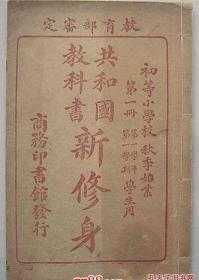 教育部審定
初等小學校秋季始業
第一冊 第一學年第一學期 學生用
共和國教科書
新修身
商務印書館發行